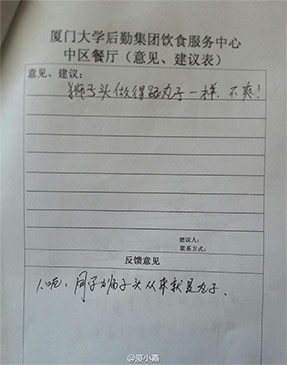 厦门大学后勤集团饮食服务中心
中区餐厅（意见、建议表）
意见、建议：
狮子头做得跟丸子一样，不爽！
建议人：
联系方式：
反馈意见
同学狮子头从来就是丸子.
@厦小嘉